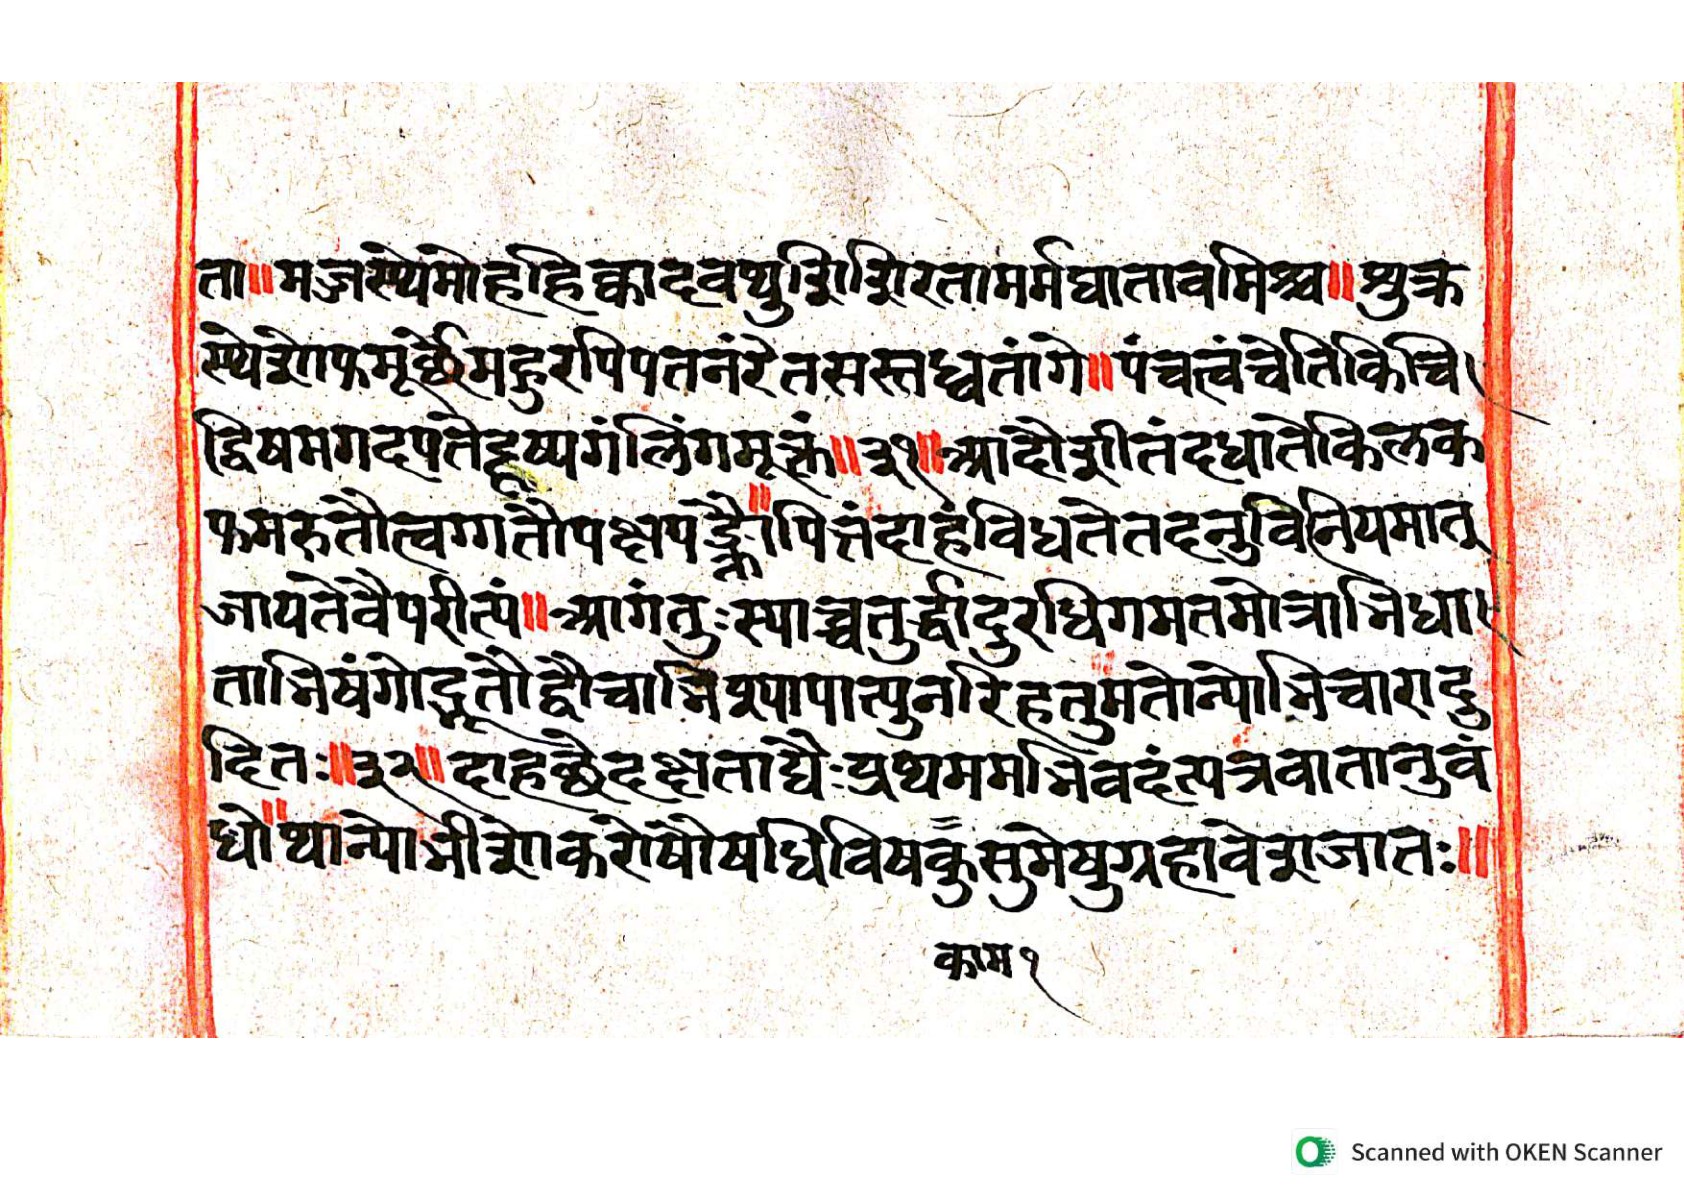 ता॥मज्जस्थेमोहहिक्कादवथुशिशिरतामर्मघातावमिश्च॥शुक्र
स्थेशेफमूर्छेमदुरपिपतनंरेतसस्तब्धतांगे॥पंचत्वंचेतिकिंचि
द्विषमगदपतेदूष्यगंलिंगमूक्तं॥३१॥आदौशीतंदधातेकिलक
फमरुतौत्वग्गतौपक्षपङ्क्तौ॥पित्तंदाहंविधत्तेतदनुविनियमात्
जायतेवैपरीत्यं॥आगंतुःस्याच्चतुर्द्धादुरधिगमतमोत्राभिघा
ताभिषंगोद्भूतौद्वौचाभिशापात्पुनरिहतुमतोन्योभिचारादु
दितः॥३२॥दाहछेदक्षताद्यैःप्रथममभिवदंत्यत्रवातानुवं
धो॥थान्योभीशोकरोषौषधिविषकुसुमेषुग्रहावेशजातः॥
काम१
Scanned with OKEN Scanner